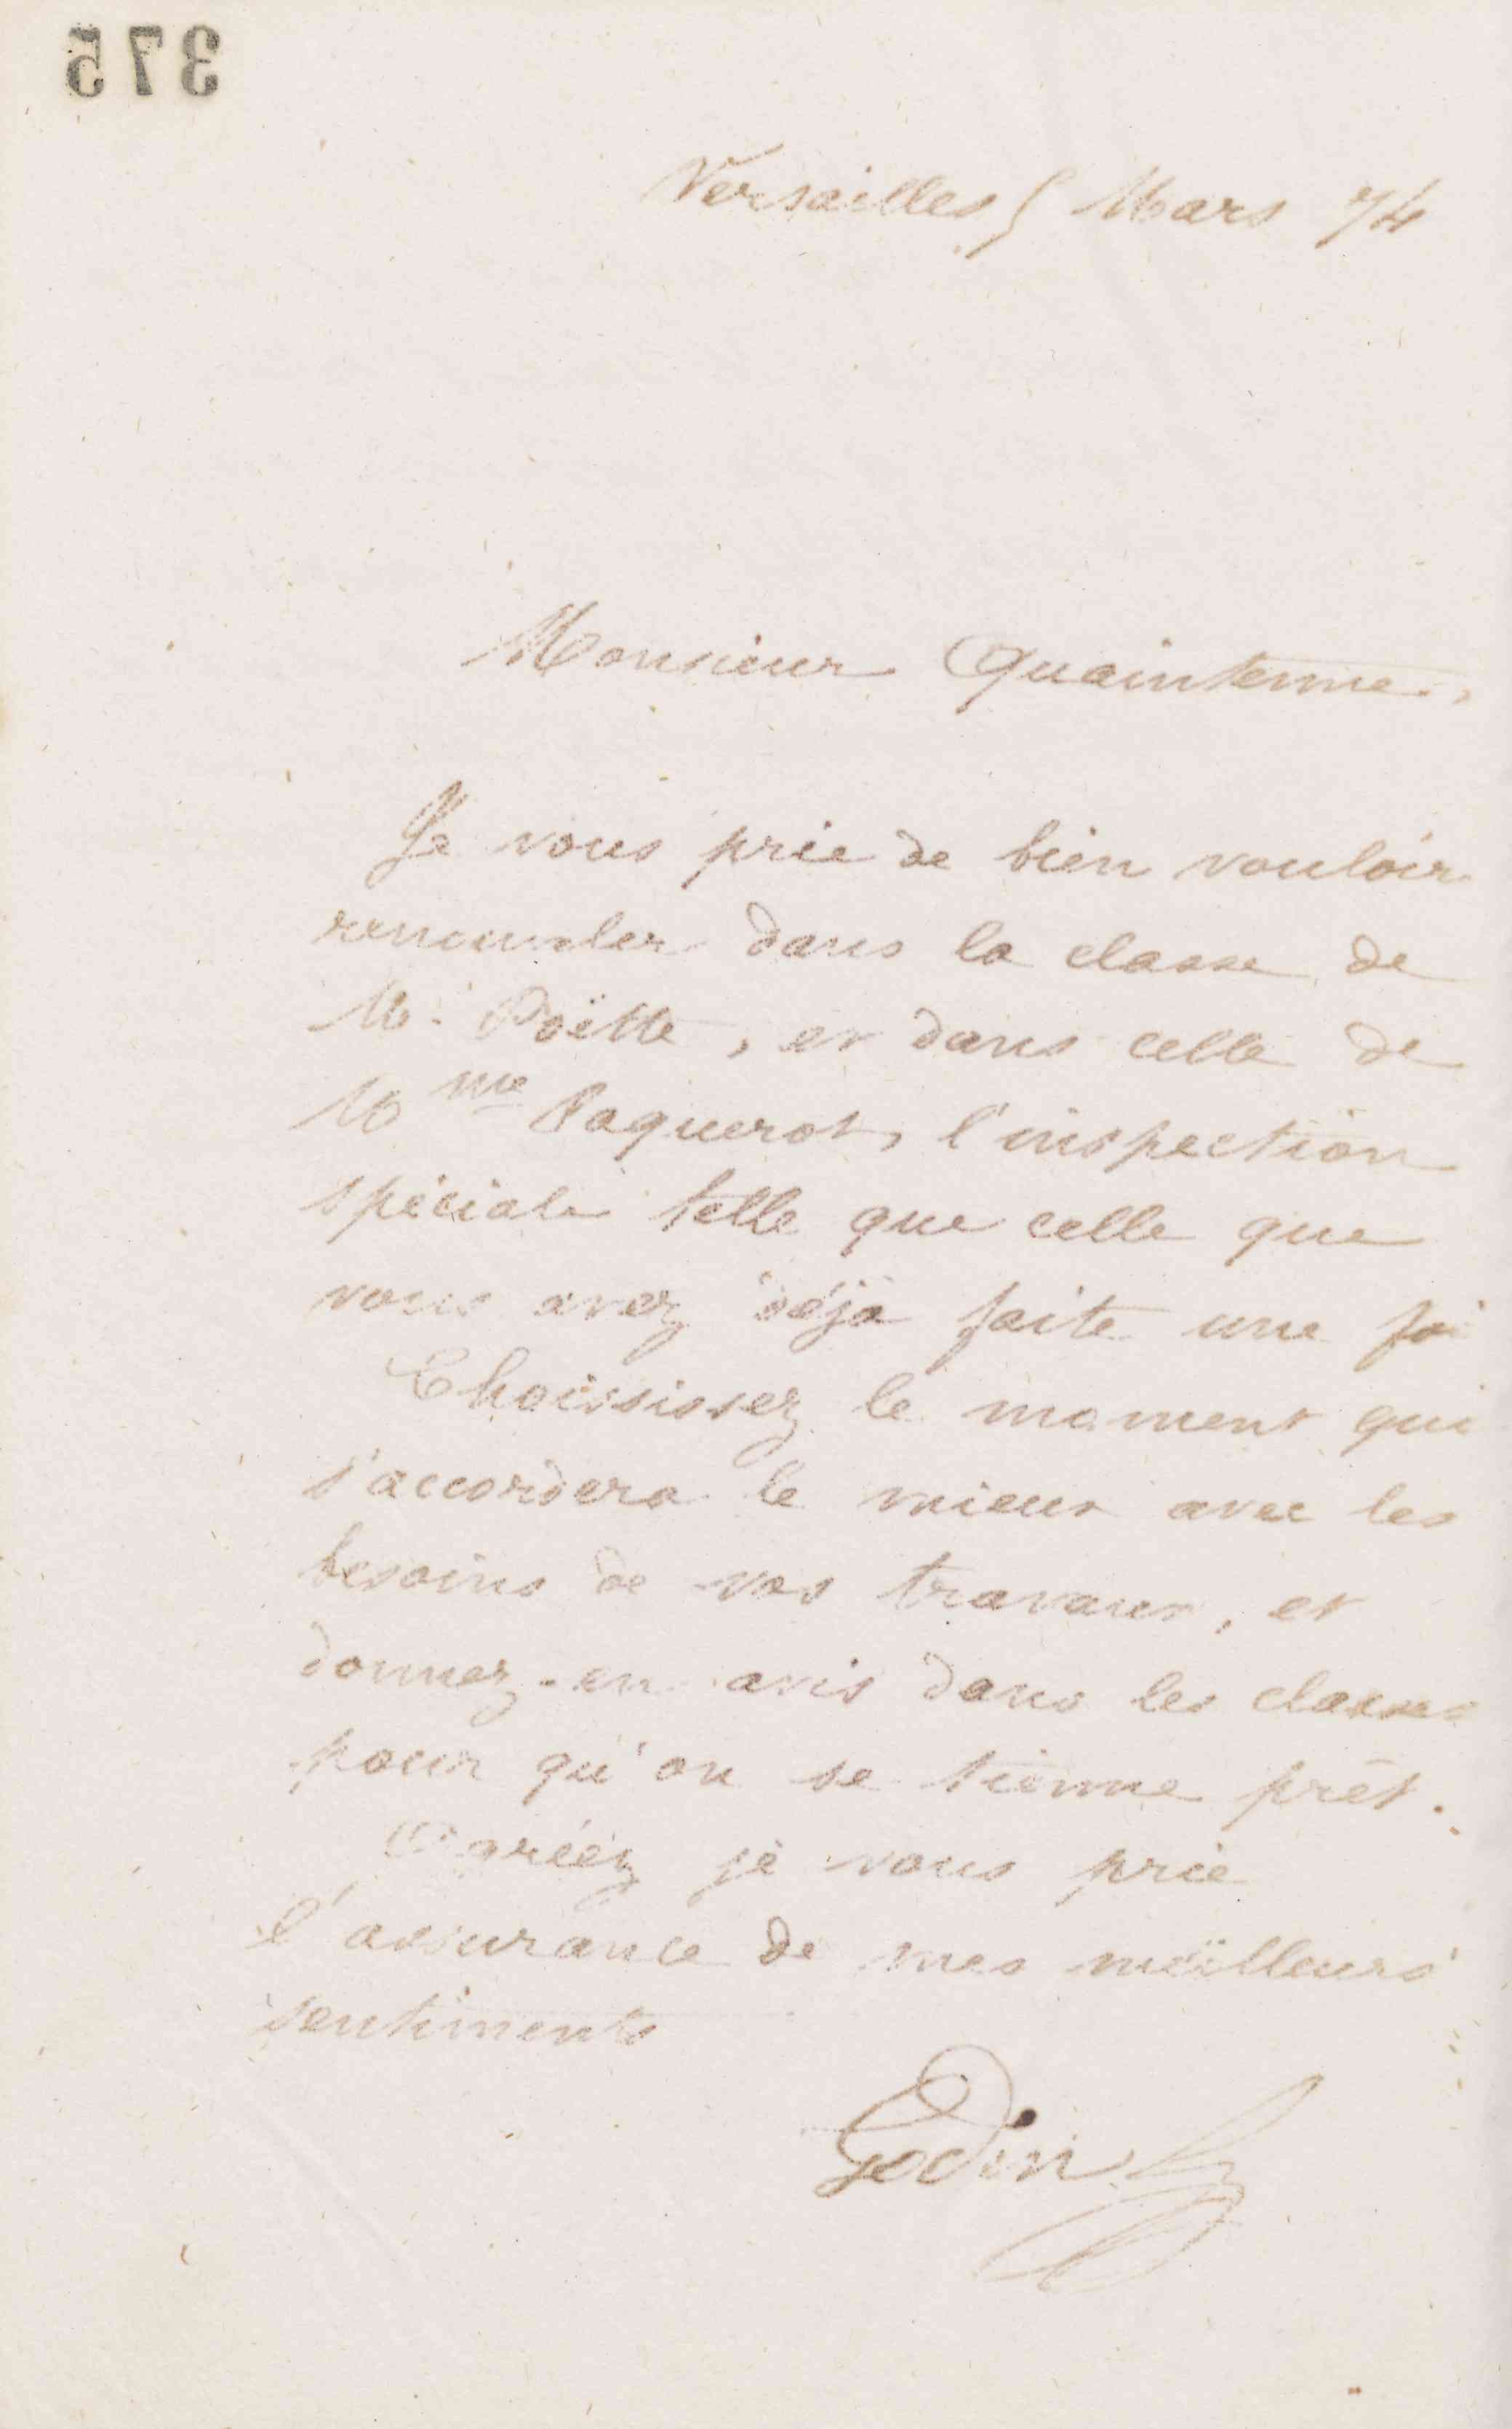 375
Versailles 5 Mars 74
Monsieur Quaintenne,
Je vous prie de bien vouloir
renouveler dans la classe de
Mr Poëtte, et dans celle de
Mme Paquerot, l'inspection
spéciale telle que celle que
vous avez déjà faite une foi
Choissisez le moment qui
s'accordera le mieux avec les
besoins de vos travaux, et
donnez-en avis dans les classes
pour qu'on se tienne prêt.
Agréez je vous prie
l'assurance de mes meilleurs
sentiments
Godin